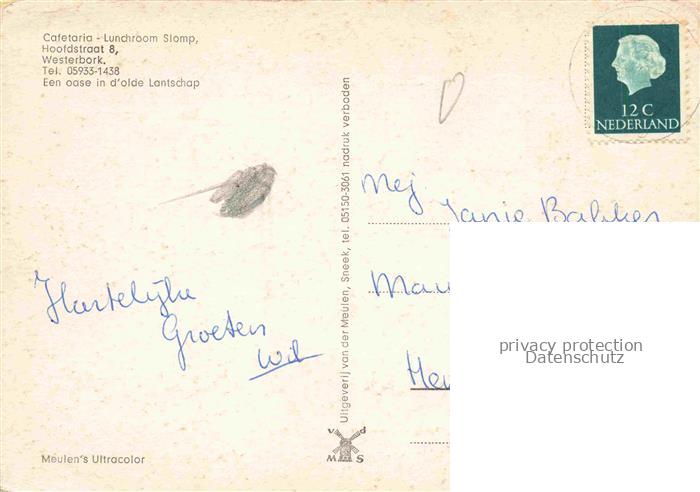 Cafetaria - Lunchroom Slomp,
Hoofdstraat 8,
Westerbork.
Tel. 05933-1438
Een oase in d'olde Lantschap
12 C
NEDERLAND
Uitgeverij van der Meulen, Sneek, tel. 05150-3061 nadruk verboden
Mej
Janie Bakker
Hartelijke
Groeten
Wil
privacy protection
Datenschutz
v d
M S
Meulen's Ultracolor